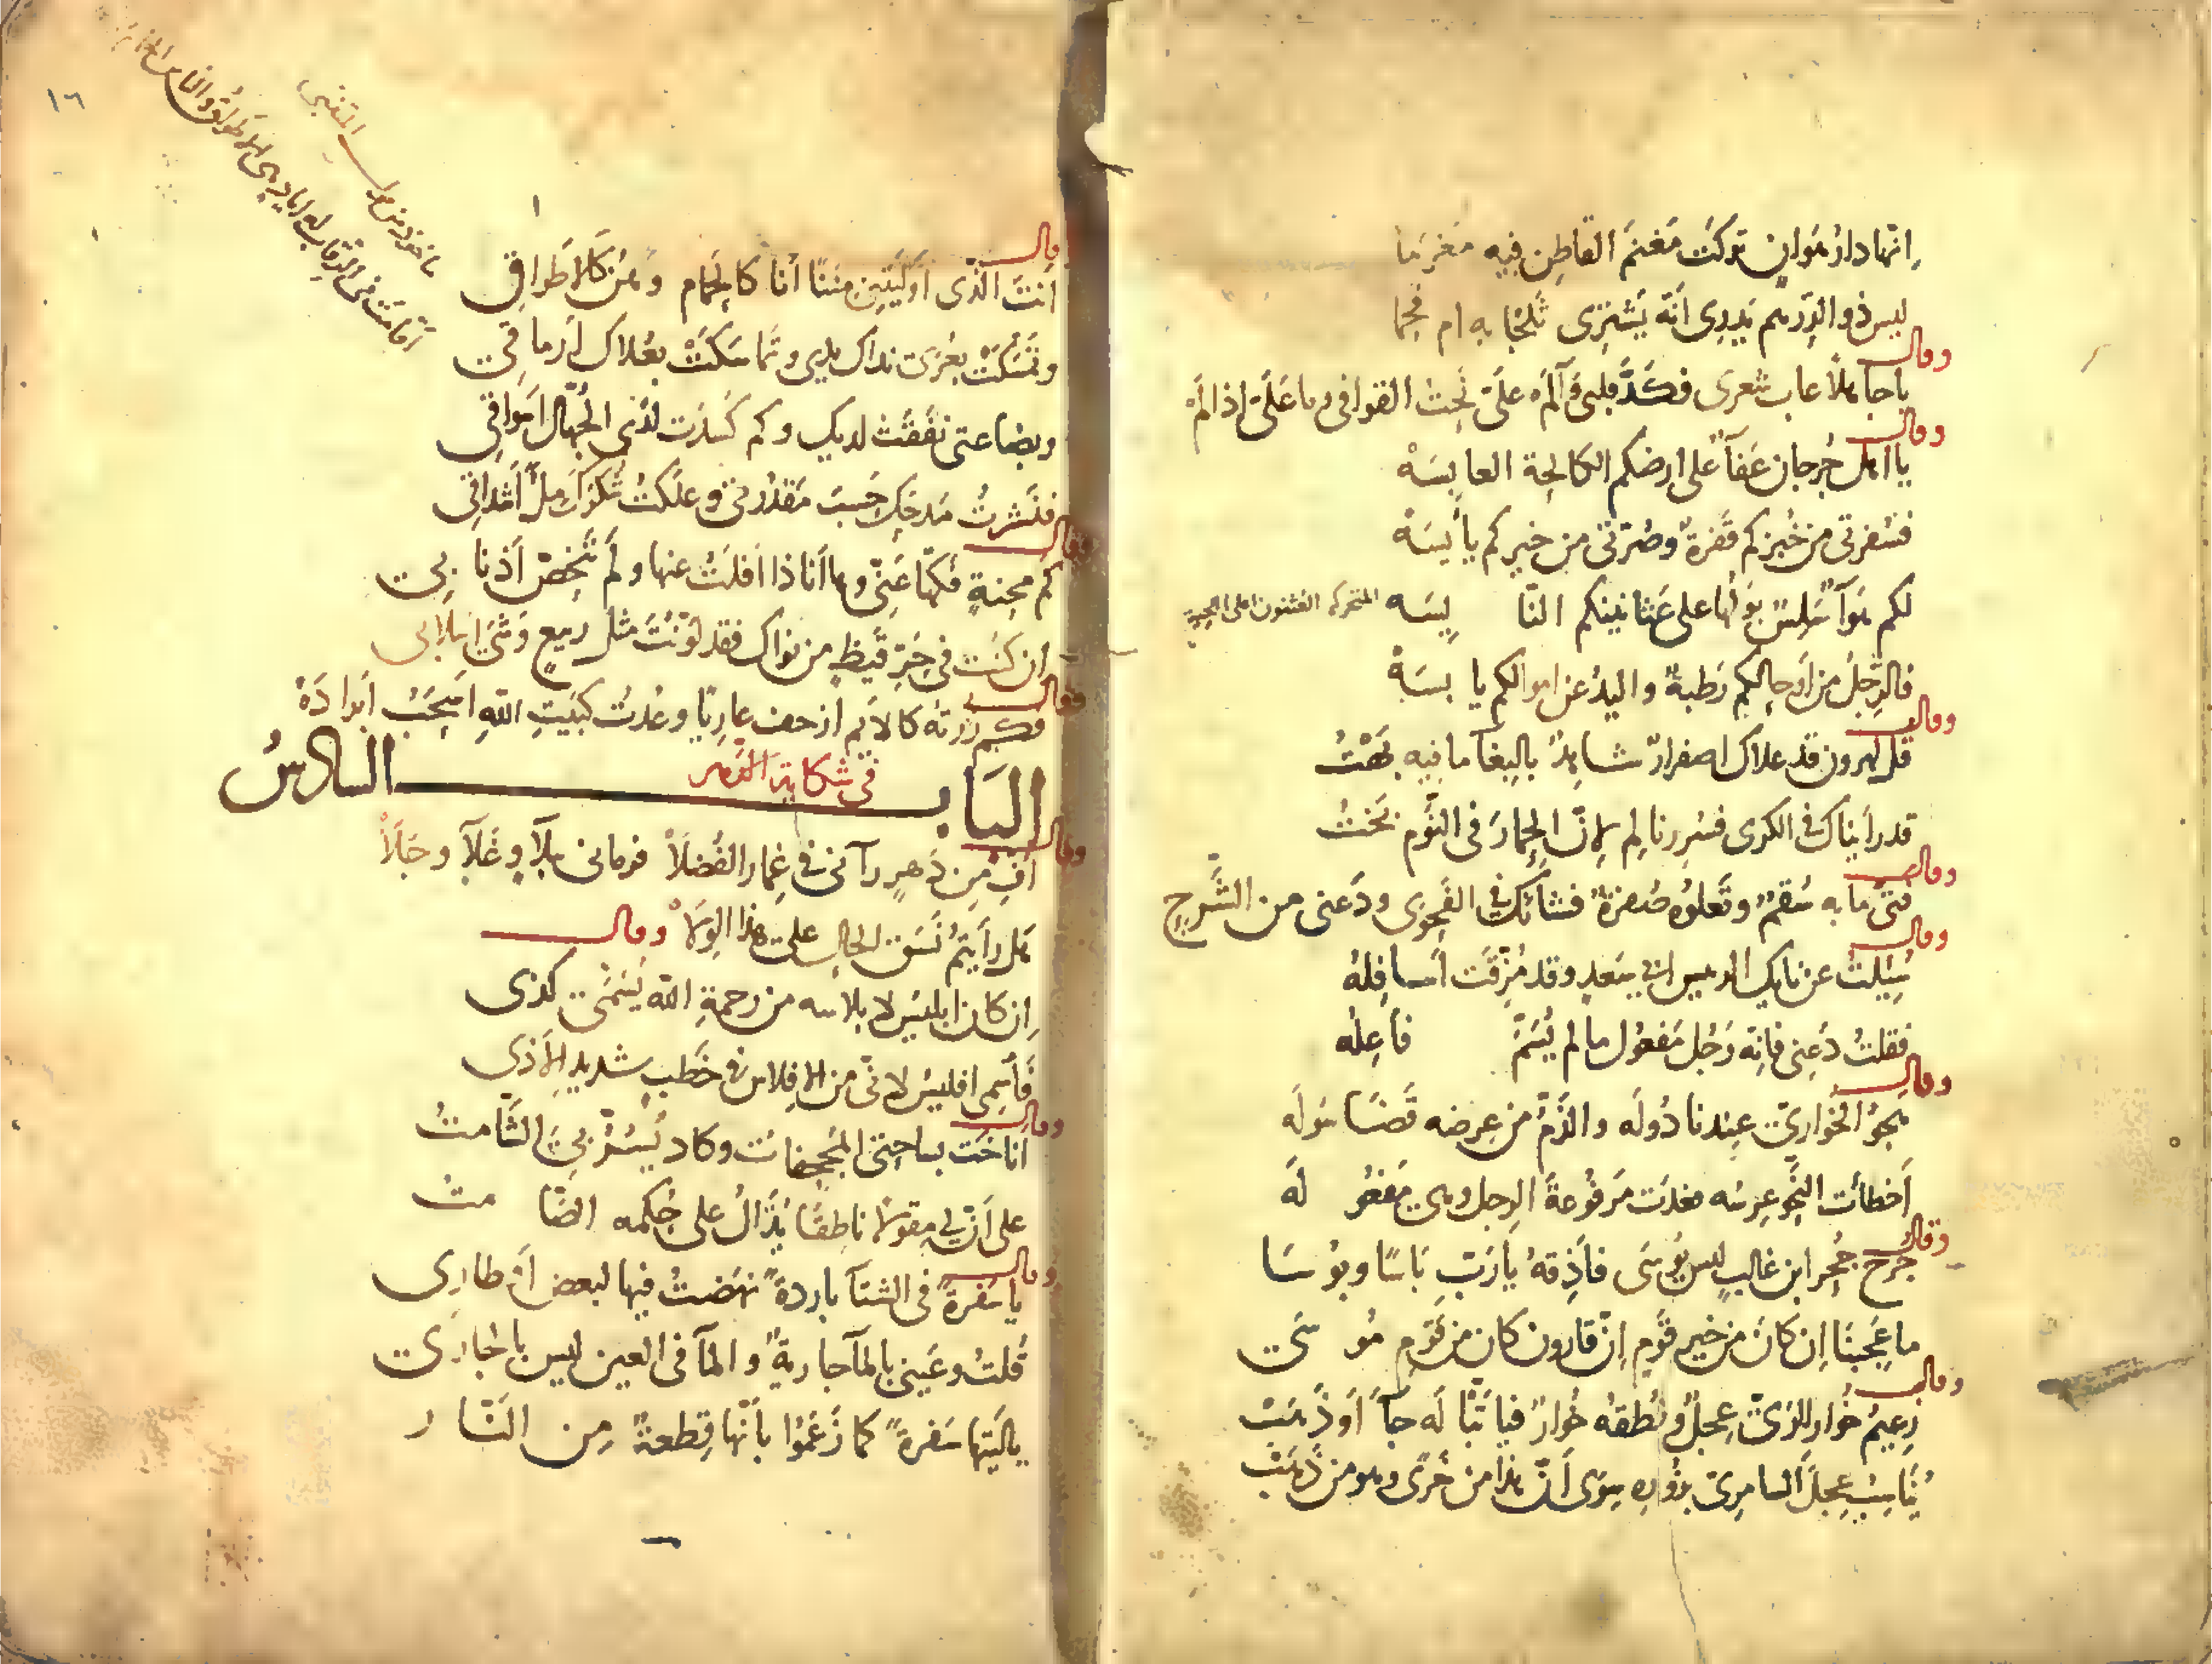 إنّها دار هوان تركت مغنم القاطن فيه مغرما
ليس ذو الدرهم يدرى أنّه يشترى ثلجا به ام فحما
وقال
يا جاهلا عاب شعرى فكدّ قلبى وآلم علىّ نحت القوافى وما علىّ اذا لم
وقال
يا اهل جرجان عفآ على ارضكم الكالحة العابسه
فسفرتى من خبزكم قفرة وصرّتى من خيركم يائسه
لكم هوآ سلس بولها على عثانينكم النا يسه
فالرجل من اوحالكم رطبة واليد عن اموالكم يابسه
وقال
قل لهرون قد علاك اصفرار شاهد بالبغا ما فيه بهت
قد رأيناك فى الكرى فسررنا لم لانّ الحمار فى النوم بخت
وقال
فتى ما به سقم وتعلوه صفرة فشانك فى الفحوى ودعنى من الشرح
وقال
سئلت عن نايك الرئيس ابى سعد وقد مزّقت اسافله
فقلت دعنى فانّه رجل مفعول ما لم يسمّ فاعله
وقال
نحو الخوارىّ عندنا دوله والذمّ من عرضه قضا سوله
أخطأت النحو عرسه فغدت مرفوعة الرجل وهى مفعو له
وقال
جرح جحر ابن غالب ليس يوسى فأذقه يا ربّ باسا وبوسا
ما عجبنا إن كان من خير قوم إنّ قارون كان من قوم مو سى
وقال
زعيم خوار الرىّ عجل ونطقه خوار فيا تبّا له جآ أو ذهب
يناسب عجل السامرىّ بزوره سوى أنّ هذا من خرى وهو من ذهب
١٦
ماخوذ من قول المتنبى
أقامت فى الرقاب له اياد هى الاطواق والناس الحمام
قال
أنت الذى أوليتنى مننا أنا كالحمام وهنّ كالاطواق
وتمسّكت بعرى نداك يدى وتماسكت بعلاك ارماقى
وبضاعتى نفقت لديك وكم كسدت لدى الجهّال اسواقى
فنشرت مدحك حسب مقدرتى وعلكت شكرك ملأ اشداقى
وقال
كم محنة فكّها عنّى وها أنا ذا افلتّ عنها ولم تنخصّ أذنا بى
ان كنت فى حرّ قيظ من نواك فقد لوّنت مثل ربيع وشى اسلابى
وقال
فكم زرته كالايم ازحف عاريا وعدت كبيت الله اسحب ابراده
الباب السادس
فى شكاية الدهر
وقال
أفّ من دهر رآنى فى غمار الفضلا فرمانى ببلآ وغلآ وجلا
هل رأيتم نسق الحال على هذا الولا وقال
إن كان ابليس لابلاسه من رحمة الله يسمّى كذى
فأسمى افليس لانّى من الافلاس فى خطب شديد الأذى
وقال
أناخت بساحتى المجحفات وكاد يسرّ بى الشامت
على أنّ لى مقولا ناطقا يذال على حكمه الصا مت
وقال
يا سفرة فى الشتآ باردة نهضت فيها لبعض أوطارى
قلت وعينى بالمآ جارية والمآ فى العين ليس بالجارى
يا ليتها سفرة كما زعموا بأنّها قطعة من النّار